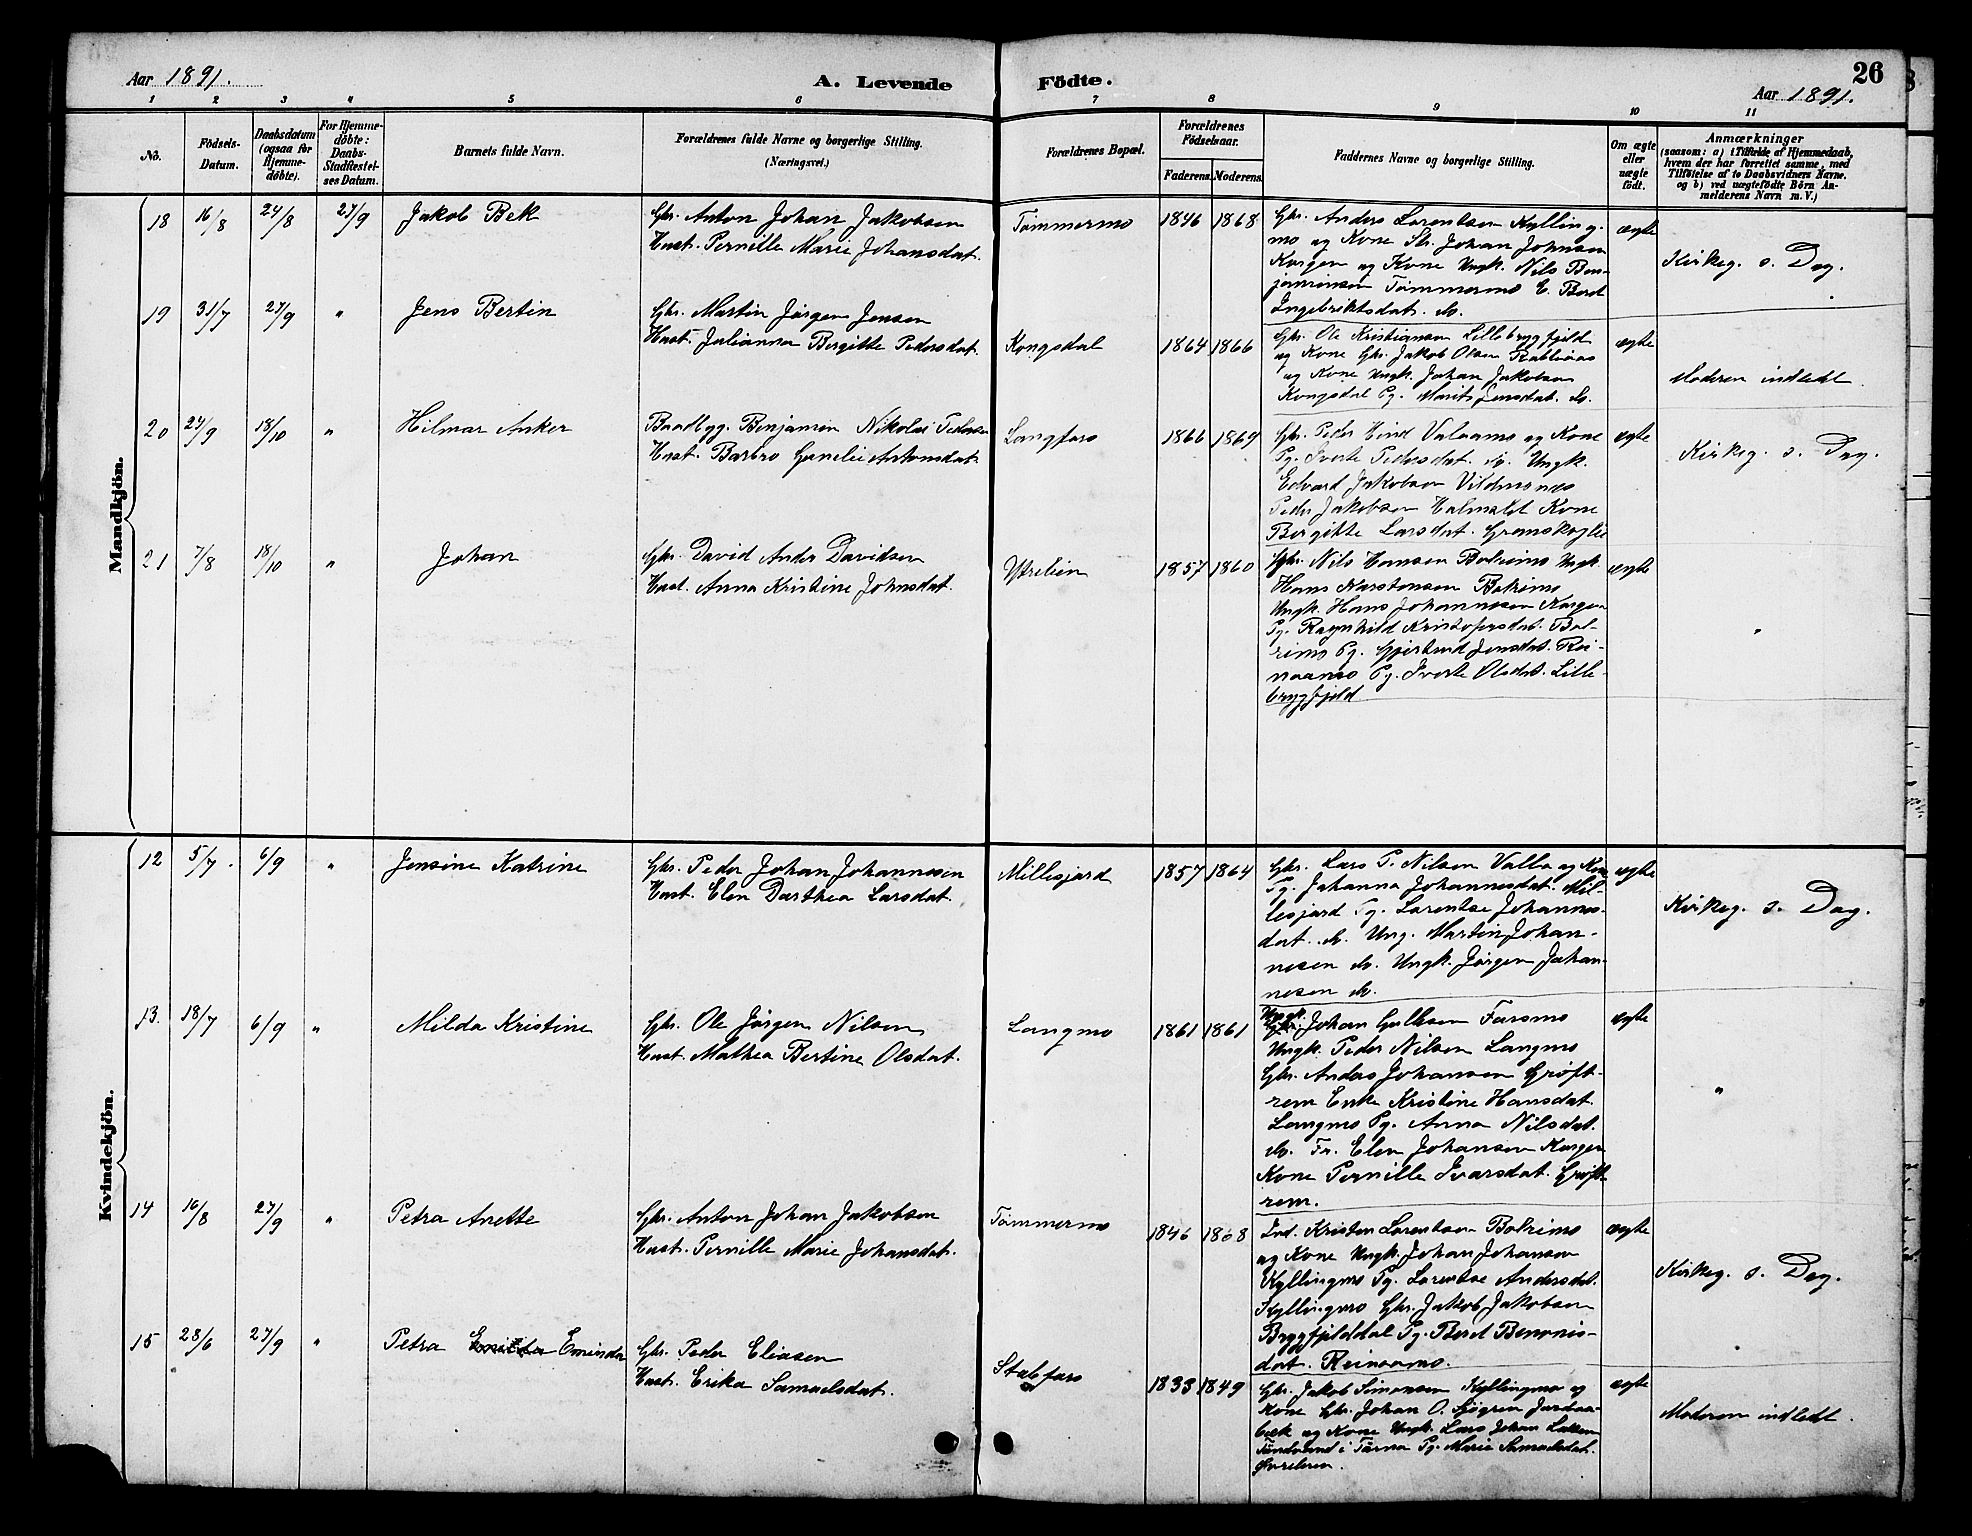 Aar 1891.
A. Levende Födte.
26
Aar 1891.
1 2 3 4 5 6 7 8 9 10 11
No.
Födsels-Datum.
Daabsdatum (ogsaa for Hjemme-döbte).
For Hjemme-döbte: Daabs-Stadfestel-ses Datum.
Barnets fulde Navn.
Forældrenes fulde Navne og borgerlige Stilling. (Næringsvei.)
Forældrenes Bopæl.
Forældrenes Födselsaar.
Faderens. Moderens.
Faddernes Navne og borgerlige Stilling.
Om ægte eller uægte födt.
Anmærkninger
(saasom: a) i Tilfælde af Hjemmedaab,
hvem der har forrettet samme, med
Tilföielse af to Daabsvidners Navne.
og b) ved uægtefödte Börn An-
melderens Navn m.V.)
Mandkjön.
18 16/8 24/8 27/9 Jakob Bek
Gbr. Anton Johan Jakobsen
Hust. Pernille Marie Johansdat.
Tømmermo 1846 1868
Gbr. Anders Lorentsen Kylling-
mo og Kone Gbr. Johan Johnsen
Korgen og Kone Ungk. Nils Ben-
jaminsen Tømmermo E. Berit
Ingebriktsdat. do.
ægte
Kirkeg. s. Dag.
19 31/7 27/9 " Jens Bertin
Gbr. Martin Jørgen Jensen
Hust. Julianna Bergitte Pedersdat.
Kongsdal 1864 1866
Gbr. Ole Kristiansen Lillebryggfjeld
og Kone Gbr. Jakob Olsen Rabliaas
og Kone Ungk. Johan Jakobsen
Kongsdal Pg. Marit Jensdat. do.
ægte
Moderen indledt.
20 24/9 18/10 " Hilmar Anker
Baadbyg. Benjamin Nikolai Pedersen
Hust. Barbro Gurelie Antonsdat.
Langfors 1866 1869
Gbr. Peder Hind Valaamo og Kone
Pg. Iverte Pedersdat. do. Ungk.
Edvard Jakobsen Vildmones
Peder Jakobsen Halmslet Kone
Bergitte Larsdat. Granskoglie
ægte
Kirkeg. s. Dag.
21 7/8 18/10 " Johan
Gbr. David Ander Davidsen
Hust. Anna Kristine Johnsdat.
Ytrelien 1857 1860
Gbr. Nils Hansen Bolrimo Ungk.
Hans Karstensen Bolrimo
Ungk. Hans Johannesen Korgen
Pg. Ragnhild Kristofersdat. Bol-
rimo Pg. Gjertrud Jensdat. Rei-
naamo Pg. Iverte Olsdat. Lille-
bryggfjeld
ægte
"
Kvindekjön.
12 5/7. 6/9 " Jensine Katrine
Gbr. Peder Johan Johannesen
Hust. Elen Dorthea Larsdat.
Millesjord 1857 1864
Gbr. Lars P. Nilsen Valla og Kone
Pg. Johanna Johannesdat. Mil-
lesjord Pg. Lorentse Johannes-
dat. do. Ung. Martin Johan-
nesen do. Ungk. Jørgen Johan-
nesen do.
ægte
Kirkeg. s. Dag.
13. 18/7 6/9 " Milda Kristine
Gbr. Ole Jørgen Nilsen
Hust. Mathea Bertine Olsdat.
Langmo 1861 1861
Ungk. Johan Gullesen Farsmo
Ungk. Peder Nilsen Langmo
Gbr. Anders Johansen Grøft-
rem Enke Kristine Hansdat.
Langmo Pg. Anna Nilsdat.
do. Fr. Elen Johansen Korgen
Kone Pernille Ivarsdat. Grøft-
rem.
ægte
"
14 16/8 27/9 " Petra Anette
Gbr. Anton Johan Jakobsen
Hust. Pernille Marie Johansdat.
Tømmermo 1846 1868
Ind. Kristen Lorentsen Bolrimo
og Kone Ungk. Johan Johansen
Kyllingmo Pg. Lorentse Andersdat.
Kyllingmo Gbr. Jakob Jakobsen
Bryggfjelddal Pg. Berit Benonis-
dat. Reinaamo.
ægte
Kirkeg. s. Dag.
15 28/6 27/9 " Petra Eminda
Gbr. Peder Eliasen
Hust. Erika Samuelsdat.
Stabfors 1833 1849
Gbr. Jakob Simonsen Kyllingmo og
Kone Gbr. Johan O. Sjögren
og Kone Ungk. Lars Johan
i Tärna Pg. Marie Samuelsdat.
ægte
Moderen indledt.